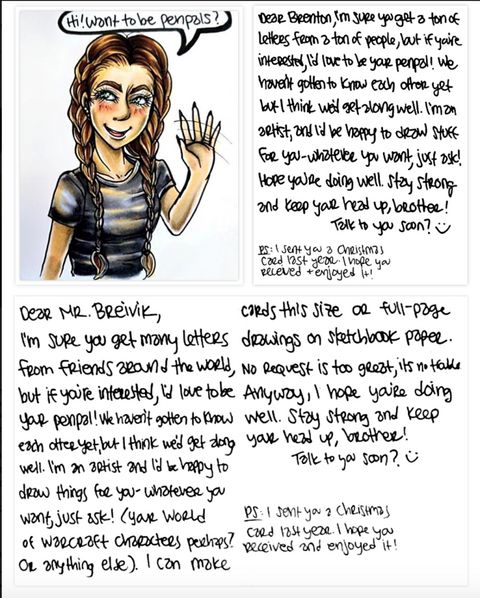 Hi! want to be penpals?
Dear Brenton, I'm sure you get a ton of
letters from a ton of people, but if you're
interested, I'd love to be your penpal! We
haven't gotten to know each other yet
but I think we'd get along well. I'm an
artist, and I'd be happy to draw stuff
for you - whatever you want, just ask!
Hope you're doing well. Stay strong
and keep your head up, brother!
Talk to you soon?
PS: I sent you a Christmas
card last year. I hope you
received + enjoyed it!
Dear Mr. Breivik,
I'm sure you get many letters
from friends around the world,
but if you're interested, I'd love to be
your penpal! We haven't gotten to know
each other yet, but I think we'd get along
well. I'm an artist and I'd be happy to
draw things for you - whatever you
want, just ask! (your World
of Warcraft characters perhaps?
Or anything else). I can make
cards this size or full-page
drawings on sketchbook paper.
No request is too great, its no trouble
Anyway, I hope you're doing
well. Stay strong and keep
your head up, brother!
Talk to you soon?
PS: I sent you a Christmas
card last year. I hope you
received and enjoyed it!